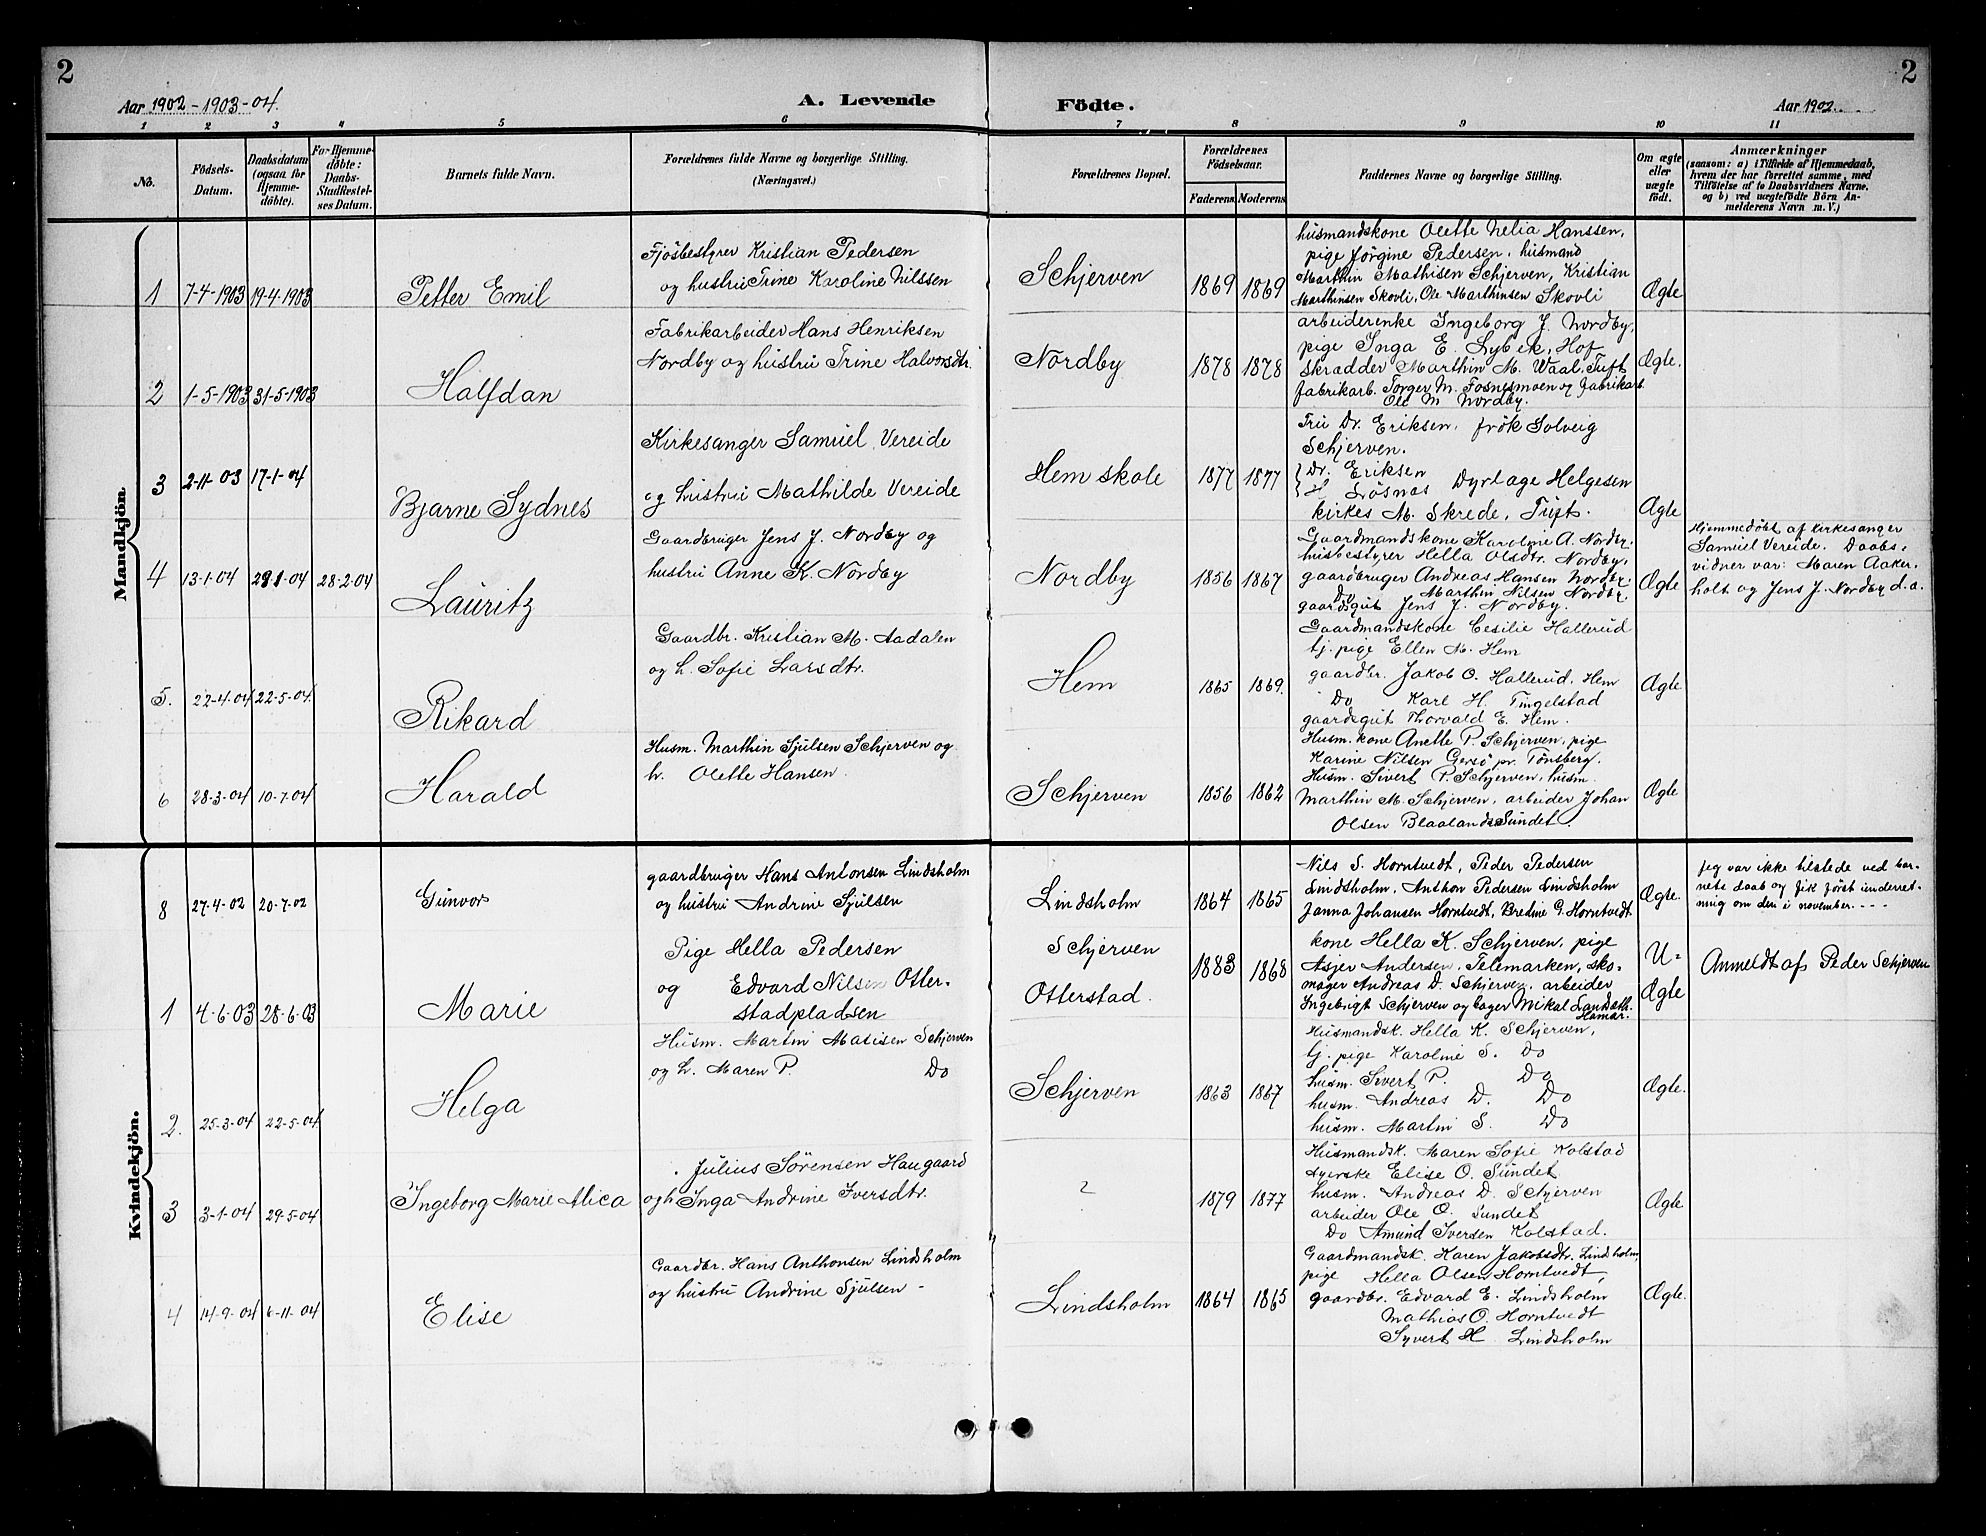 2
2
Aar 1902-1903-04.
A. Levende
Födte.
Aar 1902.
1 2 3 4 5 6 7 8 9 10 11
No.
Födsels-
Datum.
Daabsdatum
(ogsaa for
Hjemme-
döbte).
For Hjemme-
döbte:
Daabs-
Stadfæstel-
ses Datum.
Barnets fulde Navn.
Forældrenes fulde Navne og borgerlige Stilling.
(Næringsvei.)
Forældrenes Bopæl.
Forældrenes
Födselsaar.
Faderens. Moderens.
Faddernes Navne og borgerlige Stilling.
Om ægte
eller
uægte
födt.
Anmærkninger
(saasom: a) i Tilfælde af Hjemmedaab,
hvem der har forrettet samme, med
Tilföielse af to Daabsvidners Navne.
og b) ved uægtefödte Börn An-
melderens Navn m. V.)
Mandkjön.
1 7-4-1903 19-4-1903
Petter Emil
Fjösbestyrer Kristian Pedersen
og hustru Trine Karoline Nilssen
Schjerven
1869 1869
husmandskone Olette Nelia Hanssen,
pige Jørgine Pedersen, husmand
Marthin Mathisen Schjerven, Kristian
Marthinsen Skovli, Ole Marthinsen Skovli
Ægte
2 1-5-1903 31-5-1903
Halfdan
Fabrikarbeider Hans Henriksen
Nordby og hustru Trine Halvorsdtr.
Nordby
1878 1878
arbeiderenke Ingeborg J. Nordby,
pige Inga E. Lybek, Hof
skradder Marthin M. Waal, Tuft
fabrikarb. Torger M. Fosnesmoen og fabrikar.
Ole M Nordby.
Ægte.
3 2-11-03 17-1-04
Bjarne Sydnes
Kirkesanger Samuel Vereide
og hustru Mathilde Vereide
Hem skole
1877 1877
Fru Dr. Eriksen, frök Solveig
Schjerven.
Dr. Eriksen
Løsnas Dyrlæge Helgesen
kirkes M. Skrede, Tuft.
Ægte
4 13-1-04 29 1-04 28-2-04
Lauritz
Gaardbruger Jens J. Nordby og
hustru Anne K. Nordby
Nordby
1856 1867
Gaardmandskone Karoline A. Nordby.
husbestyrer Hella Olsdtr. Nordby,
gaardbruger Andreas Hansen Nordby.
Do Marthin Nilsen Nordby
gaardsgut Jens J. Nordby.
Ægte
Hjemmedøbt af kirkesanger
Samuel Vereide. Daabs-
vidner var: Maren Aaker-
holt og Jens J. Nordby d.a.
5. 22-4-04 22-5-04
Rikard
Gaardbr. Kristian M. Aadalen
og h. Sofie Larsdtr.
Hem
1865 1869.
Gaardmandskone Cesilie Hallerud
tj. pige Ellen M. Hem
gaardbr. Jakob O. Hallerud, Hem
Do Karl H. Tingelstad
gaardsgut Thorvald E. Hem.
Ægte
6 28-3-04 10-7-04
Harald
Husm. Marthin Sjulsen Schjerven og
h. Olette Hansen.
Schjerven
1856 1862
Husm. kone Anette P. Schjerven, pige
Karine Nilsen Gersø pr. Tønsberg.
Husm. Sivert P. Schjerven, husm.
Marthin M. Schjerven, arbeider Johan
Olsen Blaalands Sundet.
Ægte
Kvindekjön.
8 27-4-02 20-7-02
Gunvor
gaardbruger Hans Antonsen Lindsholm
og hustru Andrine Sjulsen
Lindsholm
1864 1865
Nils S. Horntvedt, Peder Pedersen
Lindsholm, Anthon Pedersen Lindsholm
Janna Johansen Horntvedt, Bredine G. Horntvedt.
Ægte.
Jeg var ikke tilstede ved bar-
nets daab og fik först underret-
ning om den i november. . . .
1 4-6-03 28-6-03
Marie
Pige Hella Pedersen
og Edvard Nilsen Otter-
stadpladsen
Schjerven
Otterstad.
1883 1868
kone Hella K. Schjerven, pige
Asjer Andersen, Telemarken, sko-
mager Andreas D. Schjerven, arbeider
Ingebrigt Schjerven og bager Mikal
Hamar.
U-
Ægte
Anmeldt af Peder Schjerven
2. 25-3-04 22-5-04
Helga
Husm. Martin Matisen Schjerven
og h. Maren P. Do
Schjerven
1863 1867
Husmandsk. Hella K. Schjerven,
tj. pige Karoline S. Do
husm. Sivert P. Do
husm. Andreas D. Do
husm. Martin S. Do
Ægte.
3 3-1-04 29-5-04
Ingeborg Marie Alica
Julius Sørensen Haugaard
og h Inga Andrine Iversdtr.
?
1879 1877
Husmandsk. Maren Sofie Kolstad
syerske Elise O. Sundet
husm. Andreas D. Schjerven
arbeider Ole O. Sundet
Do Amund Iversen Kolstad.
Ægte
4 14-9-04 6-11-04
Elise
Gaardbr. Hans Anthonsen Lindsholm
og hustru Andrine Sjulsen -
Lindsholm
1864 1865
Gaardmandsk. Karen Jakobsdtr. Lindsholm,
pige Hella Olsen Horntvedt,
gaardbr. Edvard E. Lindsholm
Mathias O. Horntvedt
Syvert H. Lindsholm
Ægte.